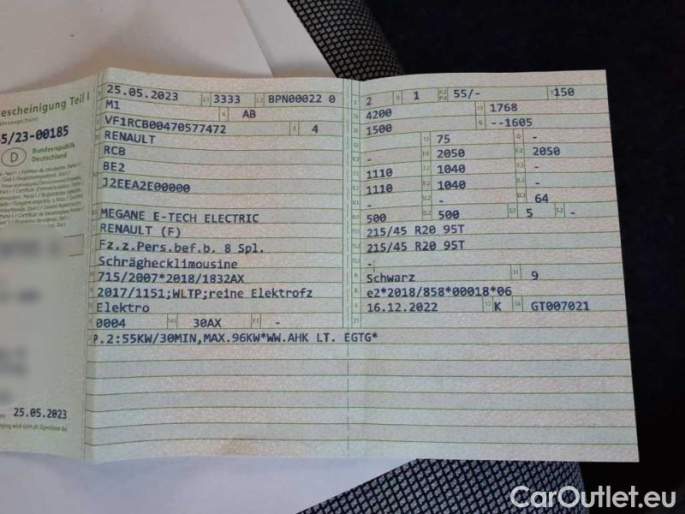 escheinigung Teil I
5/23-00185
D Bundesrepublik
Deutschland
25.05.2023
25.05.2023 3333 BPN00022 0
M1 AB
VF1RCB00470577472 4
RENAULT
RCB
BE2
J2EEA2E00000
MEGANE E-TECH ELECTRIC
RENAULT (F)
Fz.z.Pers.bef.b. 8 Spl.
Schräghecklimousine
715/2007*2018/1832AX
2017/1151;WLTP;reine Elektrofz
Elektro
0004 30AX -
P.2:55KW/30MIN,MAX.96KW*WW.AHK LT. EGTG*
2 1 55/- 150
4200 1768
1500 --1605
75 -
- 2050 2050
1110 1040 -
1110 1040 -
- - 64
500 500 5 -
215/45 R20 95T
215/45 R20 95T
-
-
Schwarz 9
e2*2018/858*00018*06
16.12.2022 K GT007021
CarOutlet.eu